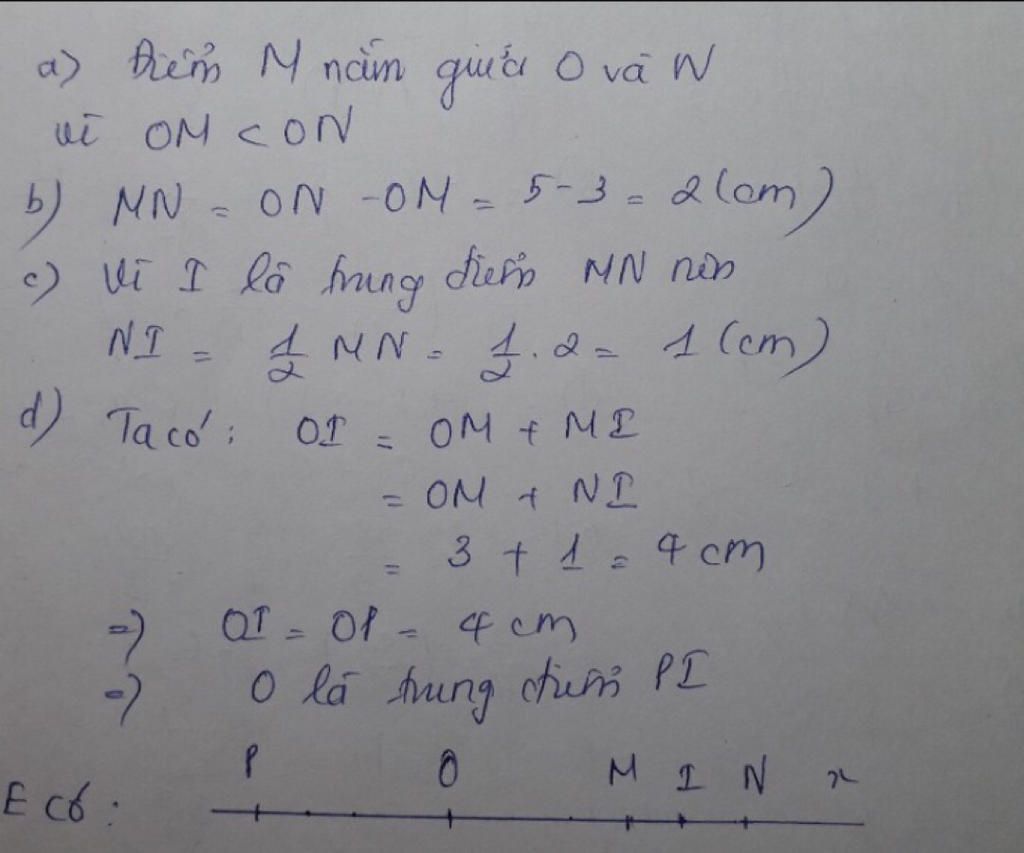 a) Điểm M nằm giữa O và N
vì OM < ON
b) MN = ON - OM = 5 - 3 = 2 (cm)
c) Vì I là trung điểm MN nên
NI = 1/2 MN = 1/2 . 2 = 1 (cm)
d) Ta có : OI = OM + MI
= OM + NI
= 3 + 1 = 4 cm
=) OI = OP = 4 cm
=) O là trung điểm PI
P O M I N x
E có :